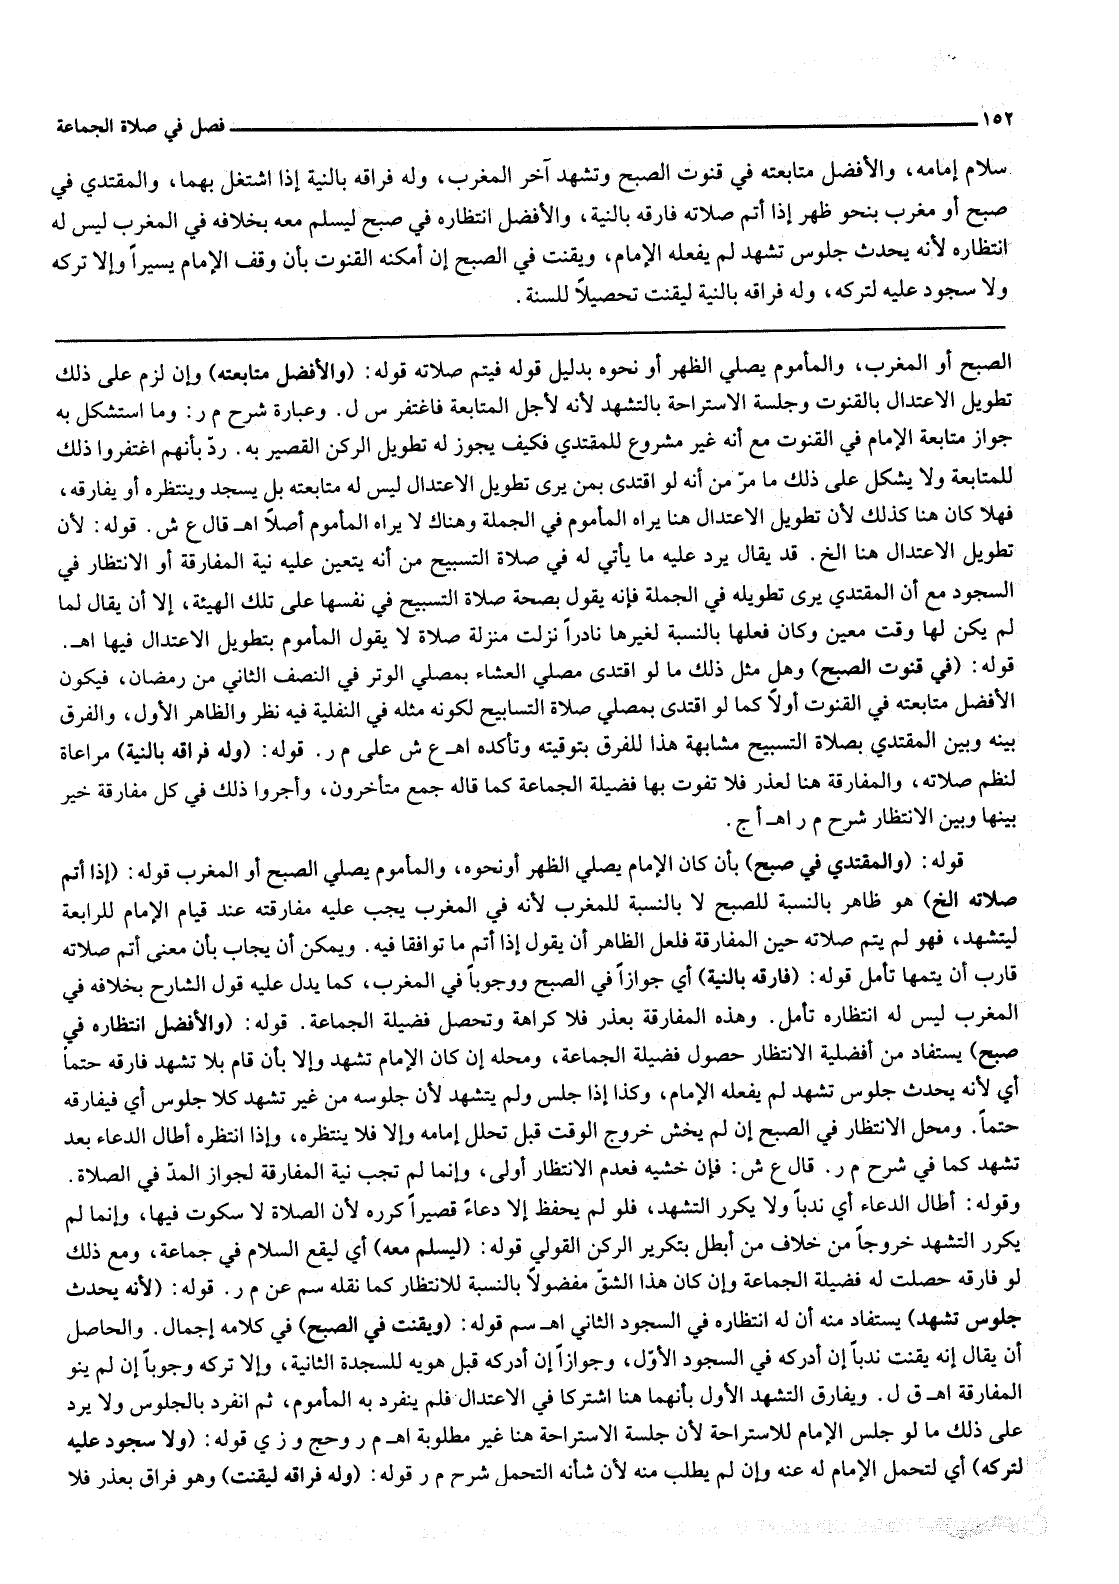 ١٥٢ فصل في صلاة الجماعة
سلام إمامه، والأفضل متابعته في قنوت الصبح وتشهد آخر المغرب، وله فراقه بالنية إذا اشتغل بهما، والمقتدي في
صبح أو مغرب بنحو ظهر إذا أتم صلاته فارقه بالنية، والأفضل انتظاره في صبح ليسلم معه بخلافه في المغرب ليس له
انتظاره لأنه يحدث جلوس تشهد لم يفعله الإمام، ويقنت في الصبح إن أمكنه القنوت بأن وقف الإمام يسيراً وإلا تركه
ولا سجود عليه لتركه، وله فراقه بالنية ليقنت تحصيلاً للسنة.
الصبح أو المغرب، والمأموم يصلي الظهر أو نحوه بدليل قوله فيتم صلاته قوله: (والأفضل متابعته) وإن لزم على ذلك
تطويل الاعتدال بالقنوت وجلسة الاستراحة بالتشهد لأنه لأجل المتابعة فاغتفر س ل. وعبارة شرح م ر: وما استشكل به
جواز متابعة الإمام في القنوت مع أنه غير مشروع للمقتدي فكيف يجوز له تطويل الركن القصير به. ردّ بأنهم اغتفروا ذلك
للمتابعة ولا يشكل على ذلك ما مرّ من أنه لو اقتدى بمن يرى تطويل الاعتدال ليس له متابعته بل يسجد وينتظره أو يفارقه،
فهلا كان هنا كذلك لأن تطويل الاعتدال هنا يراه المأموم في الجملة وهناك لا يراه المأموم أصلاً اهـ قال ع ش. قوله: لأن
تطويل الاعتدال هنا الخ. قد يقال يرد عليه ما يأتي له في صلاة التسبيح من أنه يتعين عليه نية المفارقة أو الانتظار في
السجود مع أن المقتدي يرى تطويله في الجملة فإنه يقول بصحة صلاة التسبيح في نفسها على تلك الهيئة، إلا أن يقال لما
لم يكن لها وقت معين وكان فعلها بالنسبة لغيرها نادراً نزلت منزلة صلاة لا يقول المأموم بتطويل الاعتدال فيها اهـ.
قوله: (في قنوت الصبح) وهل مثل ذلك ما لو اقتدى مصلي العشاء بمصلي الوتر في النصف الثاني من رمضان، فيكون
الأفضل متابعته في القنوت أولاً كما لو اقتدى بمصلي صلاة التسابيح لكونه مثله في النفلية فيه نظر والظاهر الأول، والفرق
بينه وبين المقتدي بصلاة التسبيح مشابهة هذا للفرق بتوقيته وتأكده اهـ ع ش على م ر. قوله: (وله فراقه بالنية) مراعاة
لنظم صلاته، والمفارقة هنا لعذر فلا تفوت بها فضيلة الجماعة كما قاله جمع متأخرون، وأجروا ذلك في كل مفارقة خير
بينها وبين الانتظار شرح م ر اهـ أ ج.
قوله: (والمقتدي في صبح) بأن كان الإمام يصلي الظهر أونحوه، والمأموم يصلي الصبح أو المغرب قوله: (إذا أتم
صلاته الخ) هو ظاهر بالنسبة للصبح لا بالنسبة للمغرب لأنه في المغرب يجب عليه مفارقته عند قيام الإمام للرابعة
ليتشهد، فهو لم يتم صلاته حين المفارقة فلعل الظاهر أن يقول إذا أتم ما توافقا فيه. ويمكن أن يجاب بأن معنى أتم صلاته
قارب أن يتمها تأمل قوله: (فارقه بالنية) أي جوازاً في الصبح ووجوباً في المغرب، كما يدل عليه قول الشارح بخلافه في
المغرب ليس له انتظاره تأمل. وهذه المفارقة بعذر فلا كراهة وتحصل فضيلة الجماعة. قوله: (والأفضل انتظاره في
صبح) يستفاد من أفضلية الانتظار حصول فضيلة الجماعة، ومحله إن كان الإمام تشهد وإلا بأن قام بلا تشهد فارقه حتماً
أي لأنه يحدث جلوس تشهد لم يفعله الإمام، وكذا إذا جلس ولم يتشهد لأن جلوسه من غير تشهد كلا جلوس أي فيفارقه
حتماً. ومحل الانتظار في الصبح إن لم يخش خروج الوقت قبل تحلل إمامه وإلا فلا ينتظره، وإذا انتظره أطال الدعاء بعد
تشهد كما في شرح م ر. قال ع ش: فإن خشيه فعدم الانتظار أولى، وإنما لم تجب نية المفارقة لجواز المدّ في الصلاة.
وقوله: أطال الدعاء أي ندباً ولا يكرر التشهد، فلو لم يحفظ إلا دعاءً قصيراً كرره لأن الصلاة لا سكوت فيها، وإنما لم
يكرر التشهد خروجاً من خلاف من أبطل بتكرير الركن القولي قوله: (ليسلم معه) أي ليقع السلام في جماعة، ومع ذلك
لو فارقه حصلت له فضيلة الجماعة وإن كان هذا الشقّ مفضولاً بالنسبة للانتظار كما نقله سم عن م ر. قوله: (لأنه يحدث
جلوس تشهد) يستفاد منه أن له انتظاره في السجود الثاني اهـ سم قوله: (ويقنت في الصبح) في كلامه إجمال. والحاصل
أن يقال إنه يقنت ندباً إن أدركه في السجود الأوّل، وجوازاً إن أدركه قبل هويه للسجدة الثانية، وإلا تركه وجوباً إن لم ينو
المفارقة اهـ ق ل. ويفارق التشهد الأول بأنهما هنا اشتركا في الاعتدال فلم ينفرد به المأموم، ثم انفرد بالجلوس ولا يرد
على ذلك ما لو جلس الإمام للاستراحة لأن جلسة الاستراحة هنا غير مطلوبة اهـ م ر وحج و ز ي قوله: (ولا سجود عليه
لتركه) أي لتحمل الإمام له عنه وإن لم يطلب منه لأن شأنه التحمل شرح م ر قوله: (وله فراقه ليقنت) وهو فراق بعذر فلا